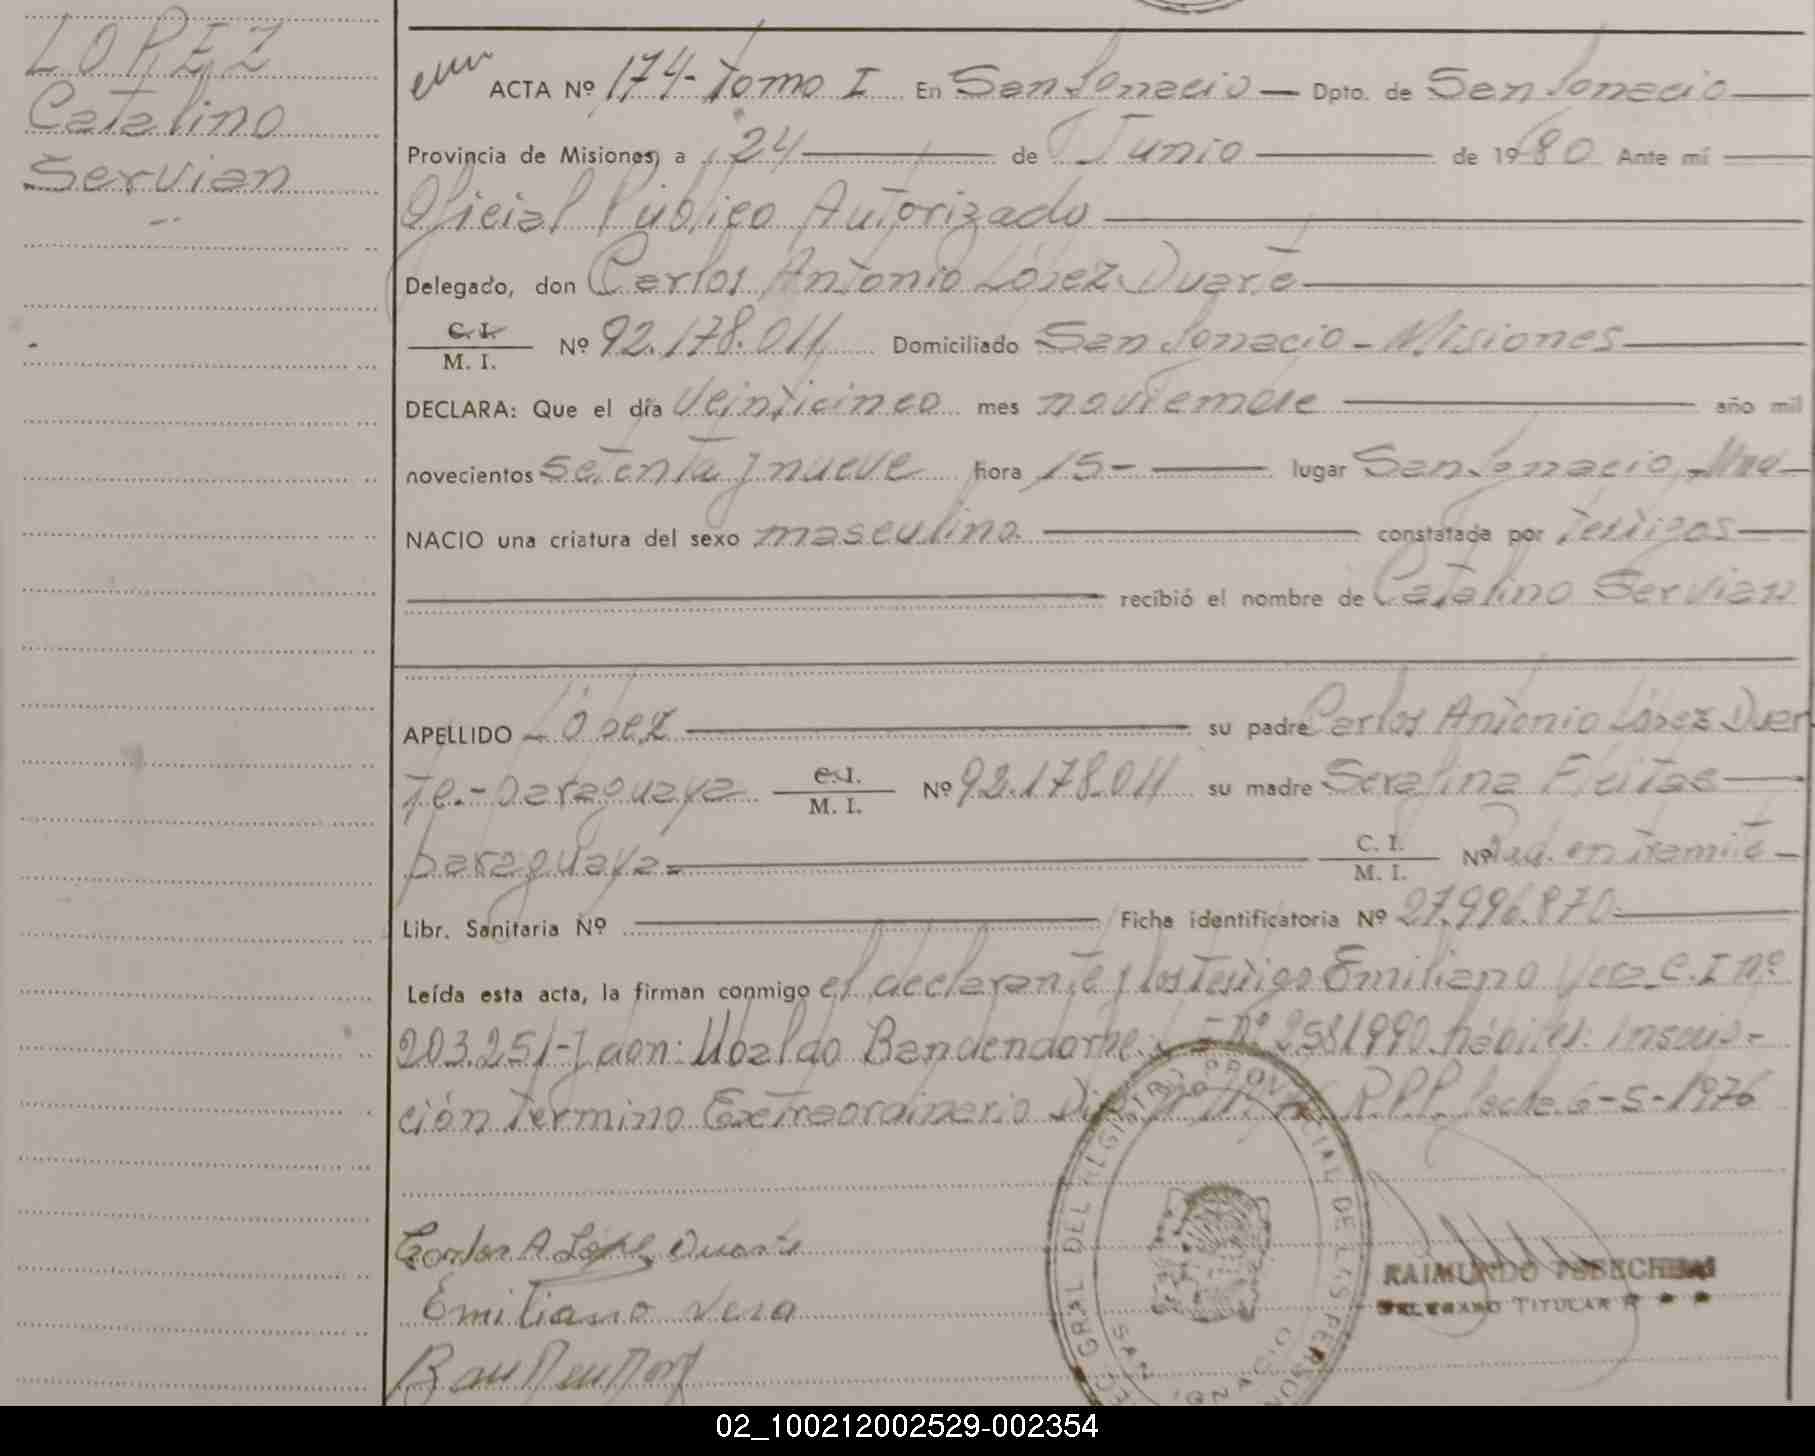 LOPEZ
Catalino
Servian
ACTA Nº 174- Tomo I En San Ignacio Dpto. de San Ignacio
Provincia de Misiones, a 24 de Junio de 1980 Ante mí
Oficial Público Autorizado
Delegado, don Carlos Antonio López Duarte
C. I.
M. I. Nº 92.178.011 Domiciliado San Ignacio - Misiones
DECLARA: Que el día Veinticinco mes noviembre año mil
novecientos Setenta y nueve hora 15- lugar San Ignacio, Mnes
NACIO una criatura del sexo masculino. constatada por testigos
recibió el nombre de Catalino Servian
APELLIDO López su padre Carlos Antonio López Duar
te.- paraguaya C.I.
M. I. Nº 92.178.011 su madre Serafina Fleitas
paraguaya- C. I.
M. I. Nº en tramite
Libr. Sanitaria Nº Ficha identificatoria Nº 27.996.870
Leída esta acta, la firman conmigo el declarante y los testigo Emiliano Vera C.I nº
203.251- y don: Ubaldo Bandendorpe nº 2581990 hábiles. Inscrip-
ción Termino Extraordinario R.P.P. fecha 6-5-1976
Carlos A. López Duarte
Emiliano Vera
GRAL DEL REGISTRO PROVINCIAL DE LAS PERSON
SAN IGNACIO
RAIMUNDO
DELEGADO TITULAR
02_100212002529-002354